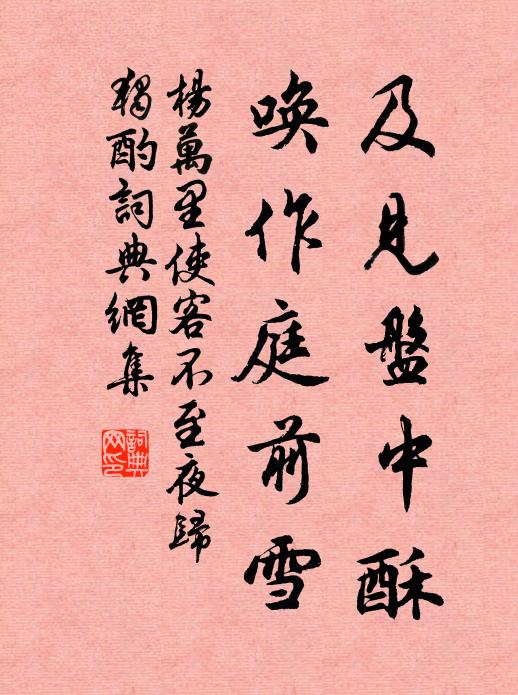 及見盤中酥
喚作庭前雪
楊萬里使客不至夜歸
獨酌詞典網集
詞典
網印